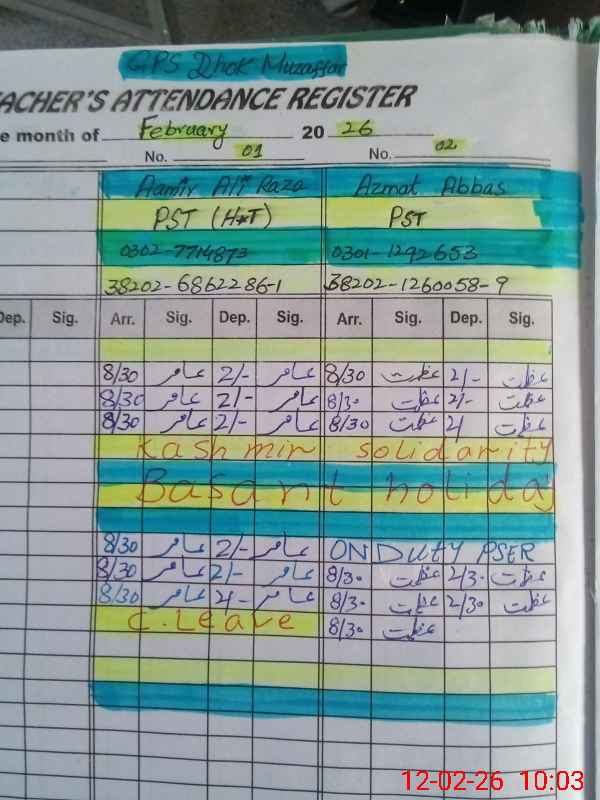 GPS Dhok Muzaffar
TEACHER'S ATTENDANCE REGISTER
e month of February 2026
No. 01 No. 02
Aamir Ali Raza Azmat Abbas
PST (H*T) PST
0302-7714873 0301-1292653
38202-6862286-1 38202-1260058-9
Dep. Sig. Arr. Sig. Dep. Sig. Arr. Sig. Dep. Sig.
8/30 عامر 2/- عامر 8/30 عظمت 2/- عظمت
8/30 عامر 2/- عامر 8/30 عظمت 2/- عظمت
8/30 عامر 2/- عامر 8/30 عظمت 2/ عظمت
Kashmir solidarity
Basant holiday
8/30 عامر 2/- عامر ON DUTY PSER
8/30 عامر 2/- عامر 8/30 عظمت 2/30 عظمت
8/30 عامر 2/- عامر 8/30 عظمت 2/30 عظمت
C.Leave 8/30 عظمت
12-02-26 10:03